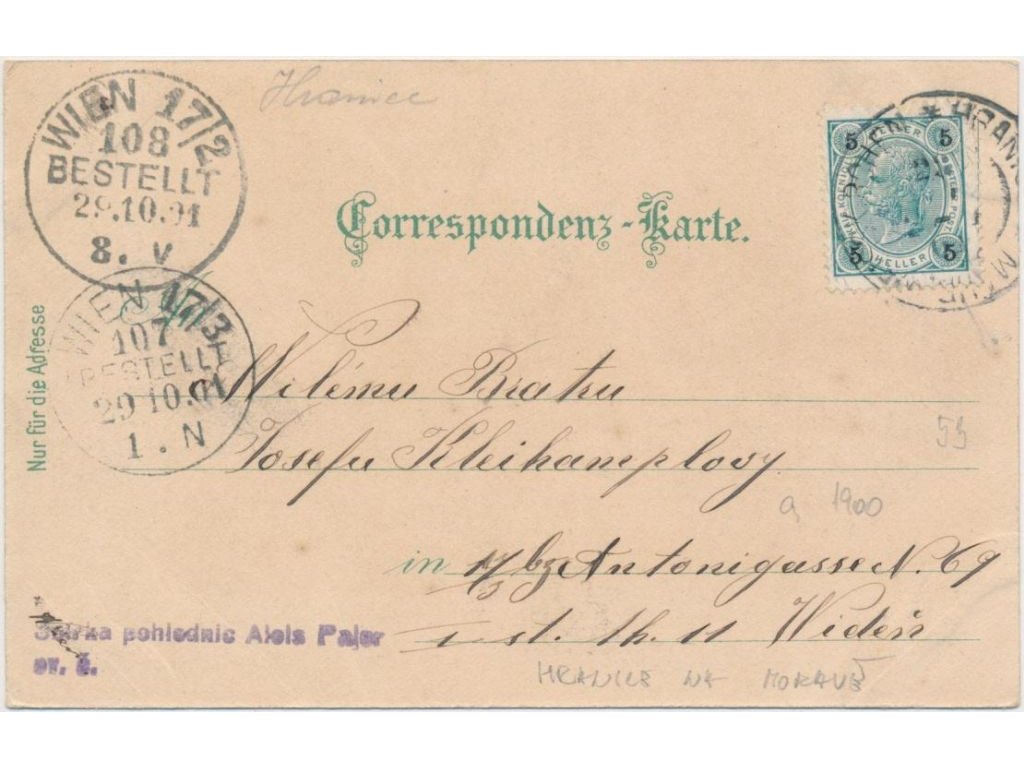 Hranice
WIEN 17/2
108
BESTELLT
29.10.01
8. V
5 5
HELLER
5 5
HELLER
Correspondenz-Karte.
WIEN 17/3
107
BESTELLT
29 10.01
1. N
Nur für die Adresse
Milému Bratru
Josefu Kleihamplovy
53
a 1900
in 17/3 bz Antonigasse N. 69
I st. th. 11 Wideň
Sbírka pohlednic Alois Pajer
ev. č.
HRANICE NA MORAVĚ